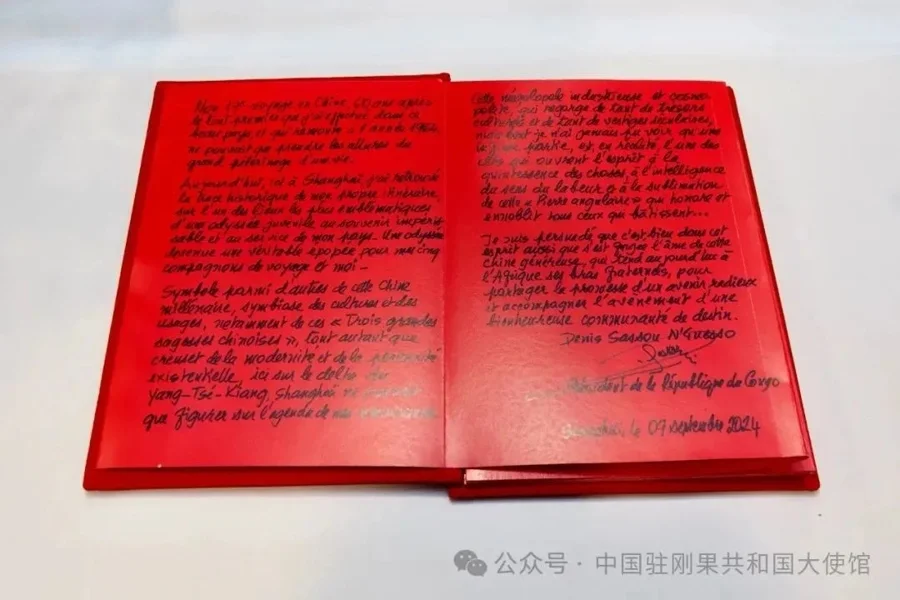 Mon 17e voyage en Chine 60 ans après
le tout premier que j'ai effectué dans ce
beau pays et qui remonte à l'année 1964,
ne pouvait que prendre les allures du
grand pèlerinage d'une vie.
Aujourd'hui, ici à Shanghai, j'ai retrouvé
la trace historique de mon propre itinéraire,
sur l'un des lieux les plus emblématiques
d'une odyssée juvénile au souvenir impéris
sable et au service de mon pays. Une odyssée
devenue une véritable épopée pour mes cinq
compagnons de voyage et moi –
Symbole parmi d'autres de cette Chine
millénaire, symbiose des cultures et des
usages, notamment de ces « Trois grandes
sagesses chinoises », tout autant que
creuset de la modernité et de la
existentielle, ici sur le delta du
Yang-Tsé-Kiang, Shanghai ne pouvait
que figurer sur l'agenda de mes
Cette mégalopole industrieuse et cosmo
polite, qui regorge de tant de trésors
culturels et de tant de vestiges séculaires,
dont je n'ai jamais pu voir qu'une
partie, est, en réalité, l'une des
clés qui ouvrent l'esprit à la
quintessence des choses, à l'intelligence
du sens du labeur et à la sublimation
de cette « Pierre angulaire » qui honore et
ennoblit tous ceux qui bâtissent...
Je suis persuadé que c'est bien dans cet
esprit aussi que s'est forgée l'âme de cette
Chine généreuse, qui tend aujourd'hui à
l'Afrique ses bras fraternels, pour
partager la promesse d'un avenir radieux
et accompagner l'avènement d'une
bienheureuse communauté de destin.
Denis Sassou N'Guesso
Président de la République du Congo
Shanghai, le 09 septembre 2024
公众号 · 中国驻刚果共和国大使馆